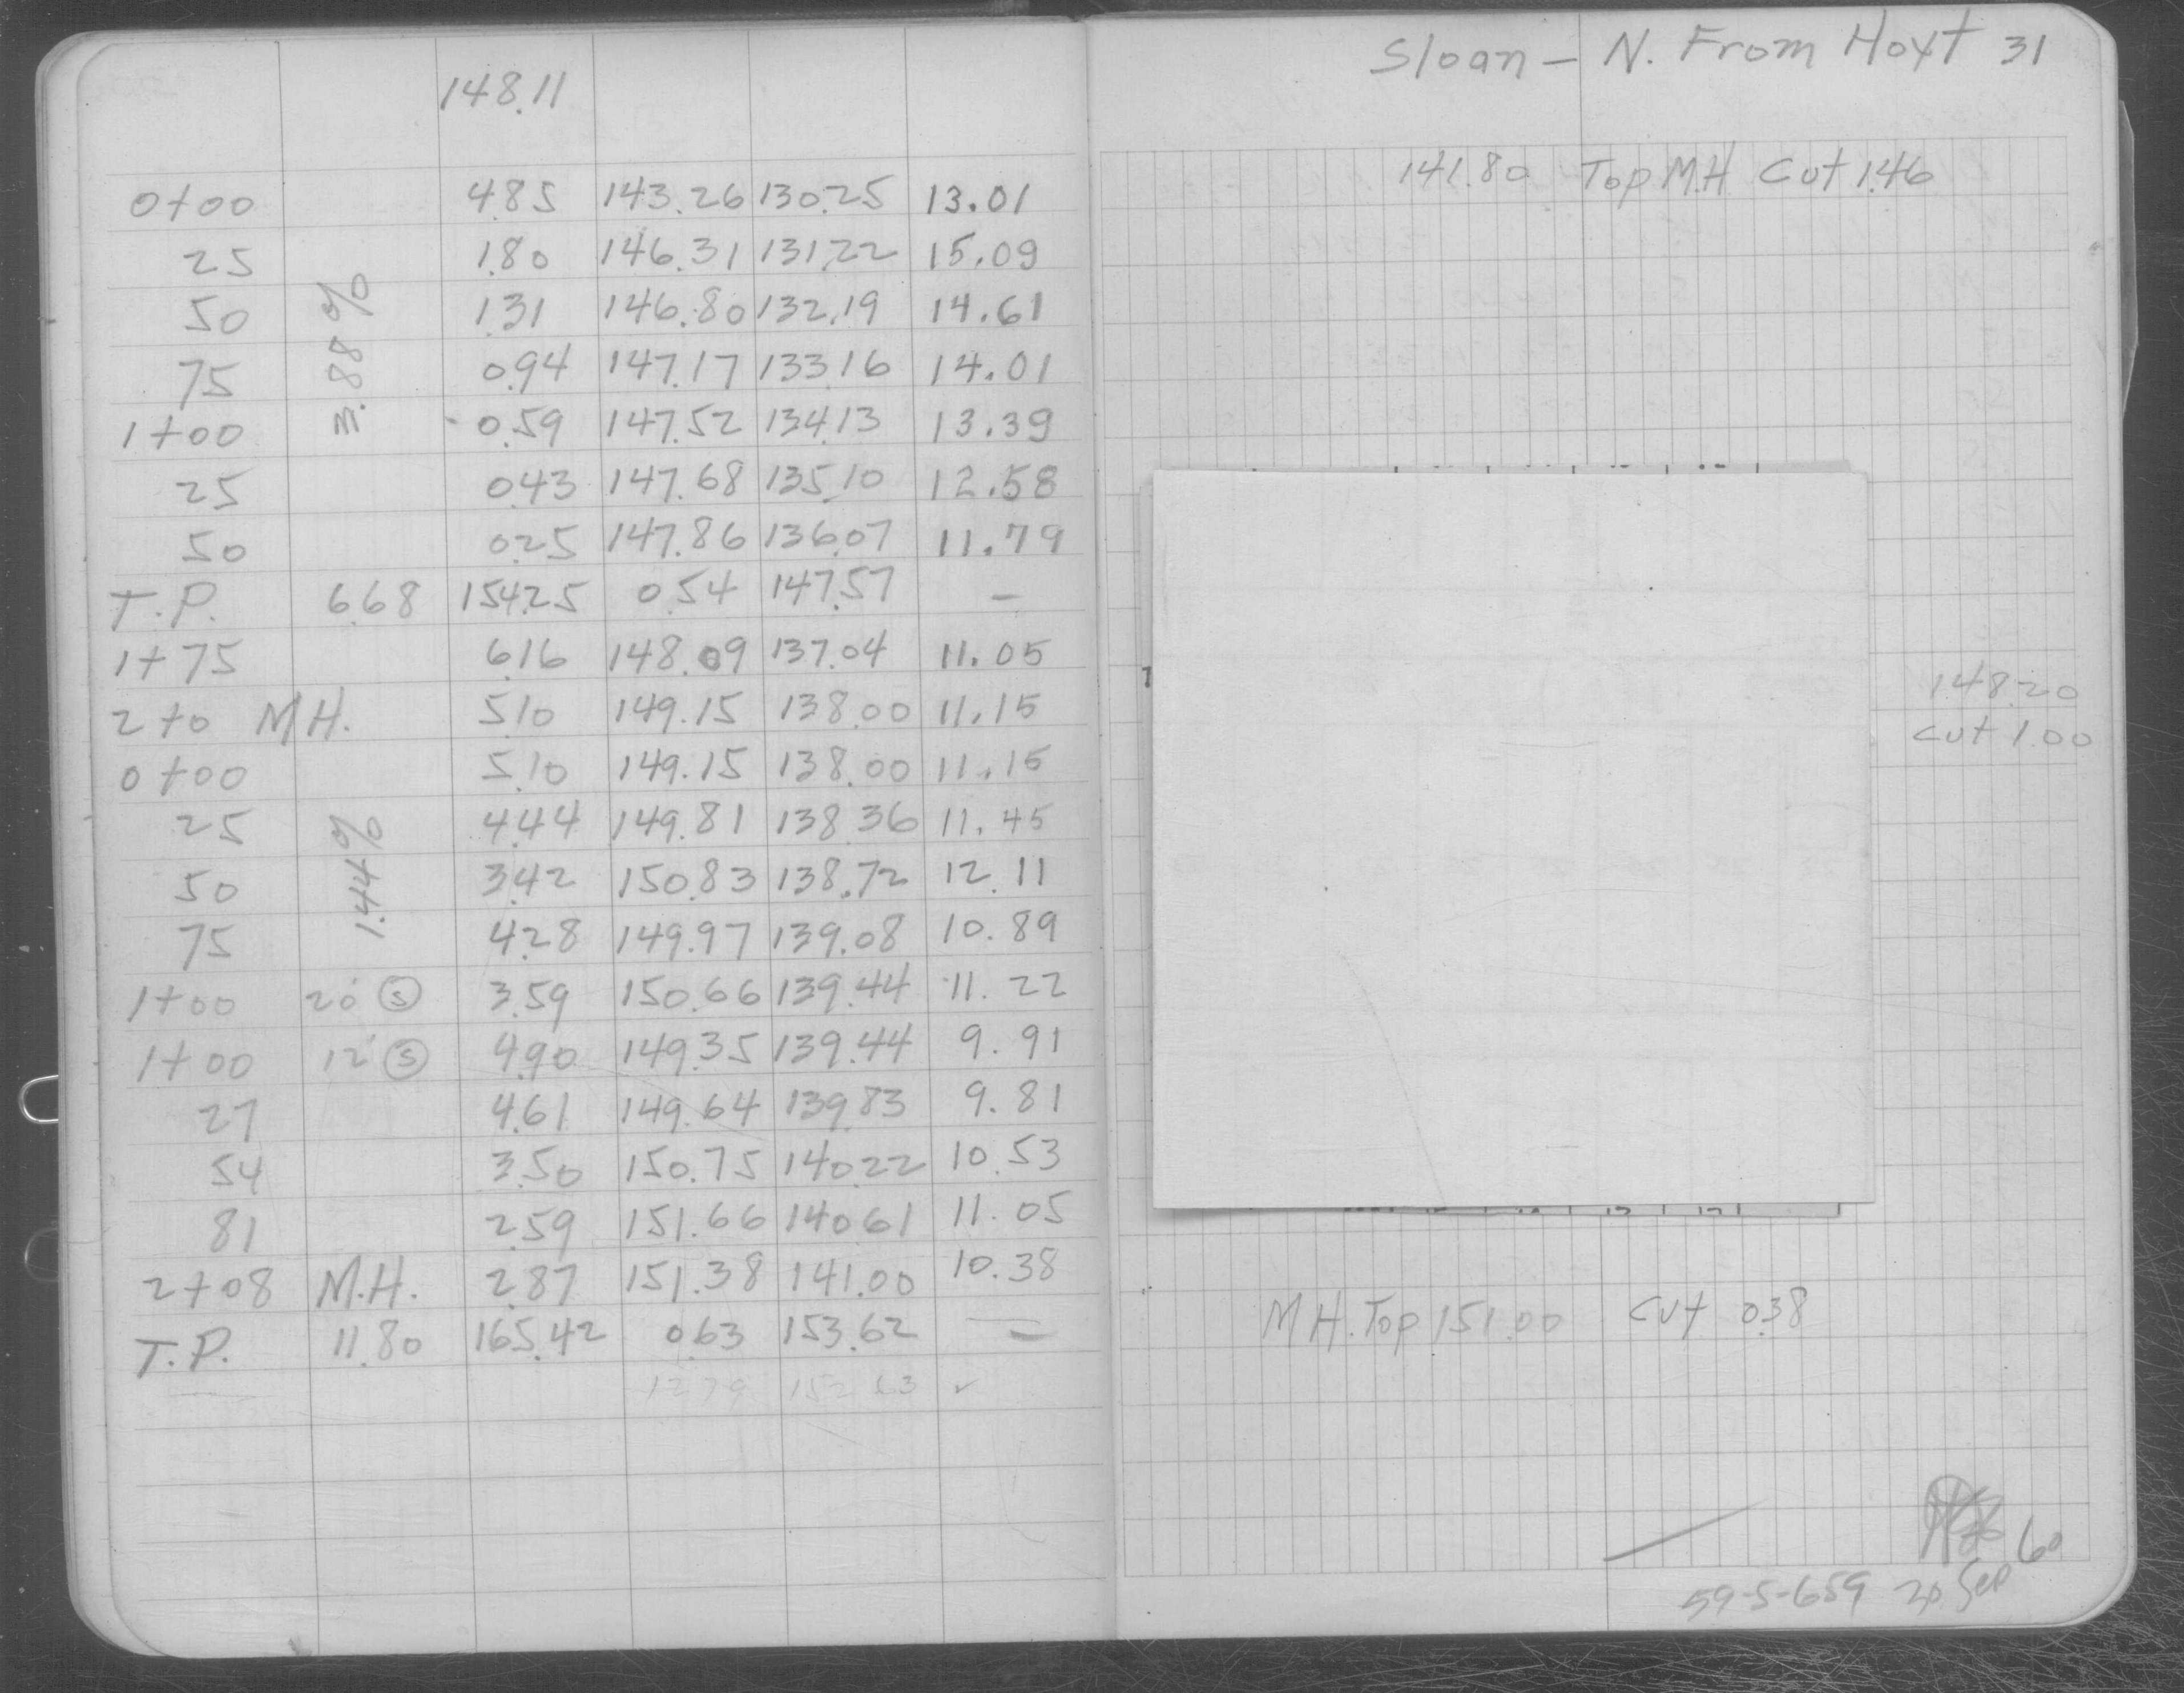 148.11
0+00 4.85 143.26 130.25 13.01
25 1.80 146.31 131.22 15.09
50 1.31 146.80 132.19 14.61
75 0.94 147.17 133.16 14.01
3.88%
1+00 0.59 147.52 134.13 13.39
25 0.43 147.68 135.10 12.58
50 0.25 147.86 136.07 11.79
T.P. 6.68 154.25 0.54 147.57 —
1+75 6.16 148.09 137.04 11.05
2+0 M.H. 5.10 149.15 138.00 11.15
0+00 5.10 149.15 138.00 11.15
25 4.44 149.81 138.36 11.45
50 3.42 150.83 138.72 12.11
75 4.28 149.97 139.08 10.89
1.44%
1+00 20' Ⓢ 3.59 150.66 139.44 11.22
1+00 12' Ⓢ 4.90 149.35 139.44 9.91
27 4.61 149.64 139.83 9.81
54 3.50 150.75 140.22 10.53
81 2.59 151.66 140.61 11.05
2+08 M.H. 2.87 151.38 141.00 10.38
T.P. 11.80 165.42 0.63 153.62 —
12.79 152.63 ✓
Sloan – N. From Hoyt 31
141.80 Top M.H Cut 1.46
148.20
cut 1.00
M H. Top 151.00 cut 0.38
59-S-659 20 Sep 60